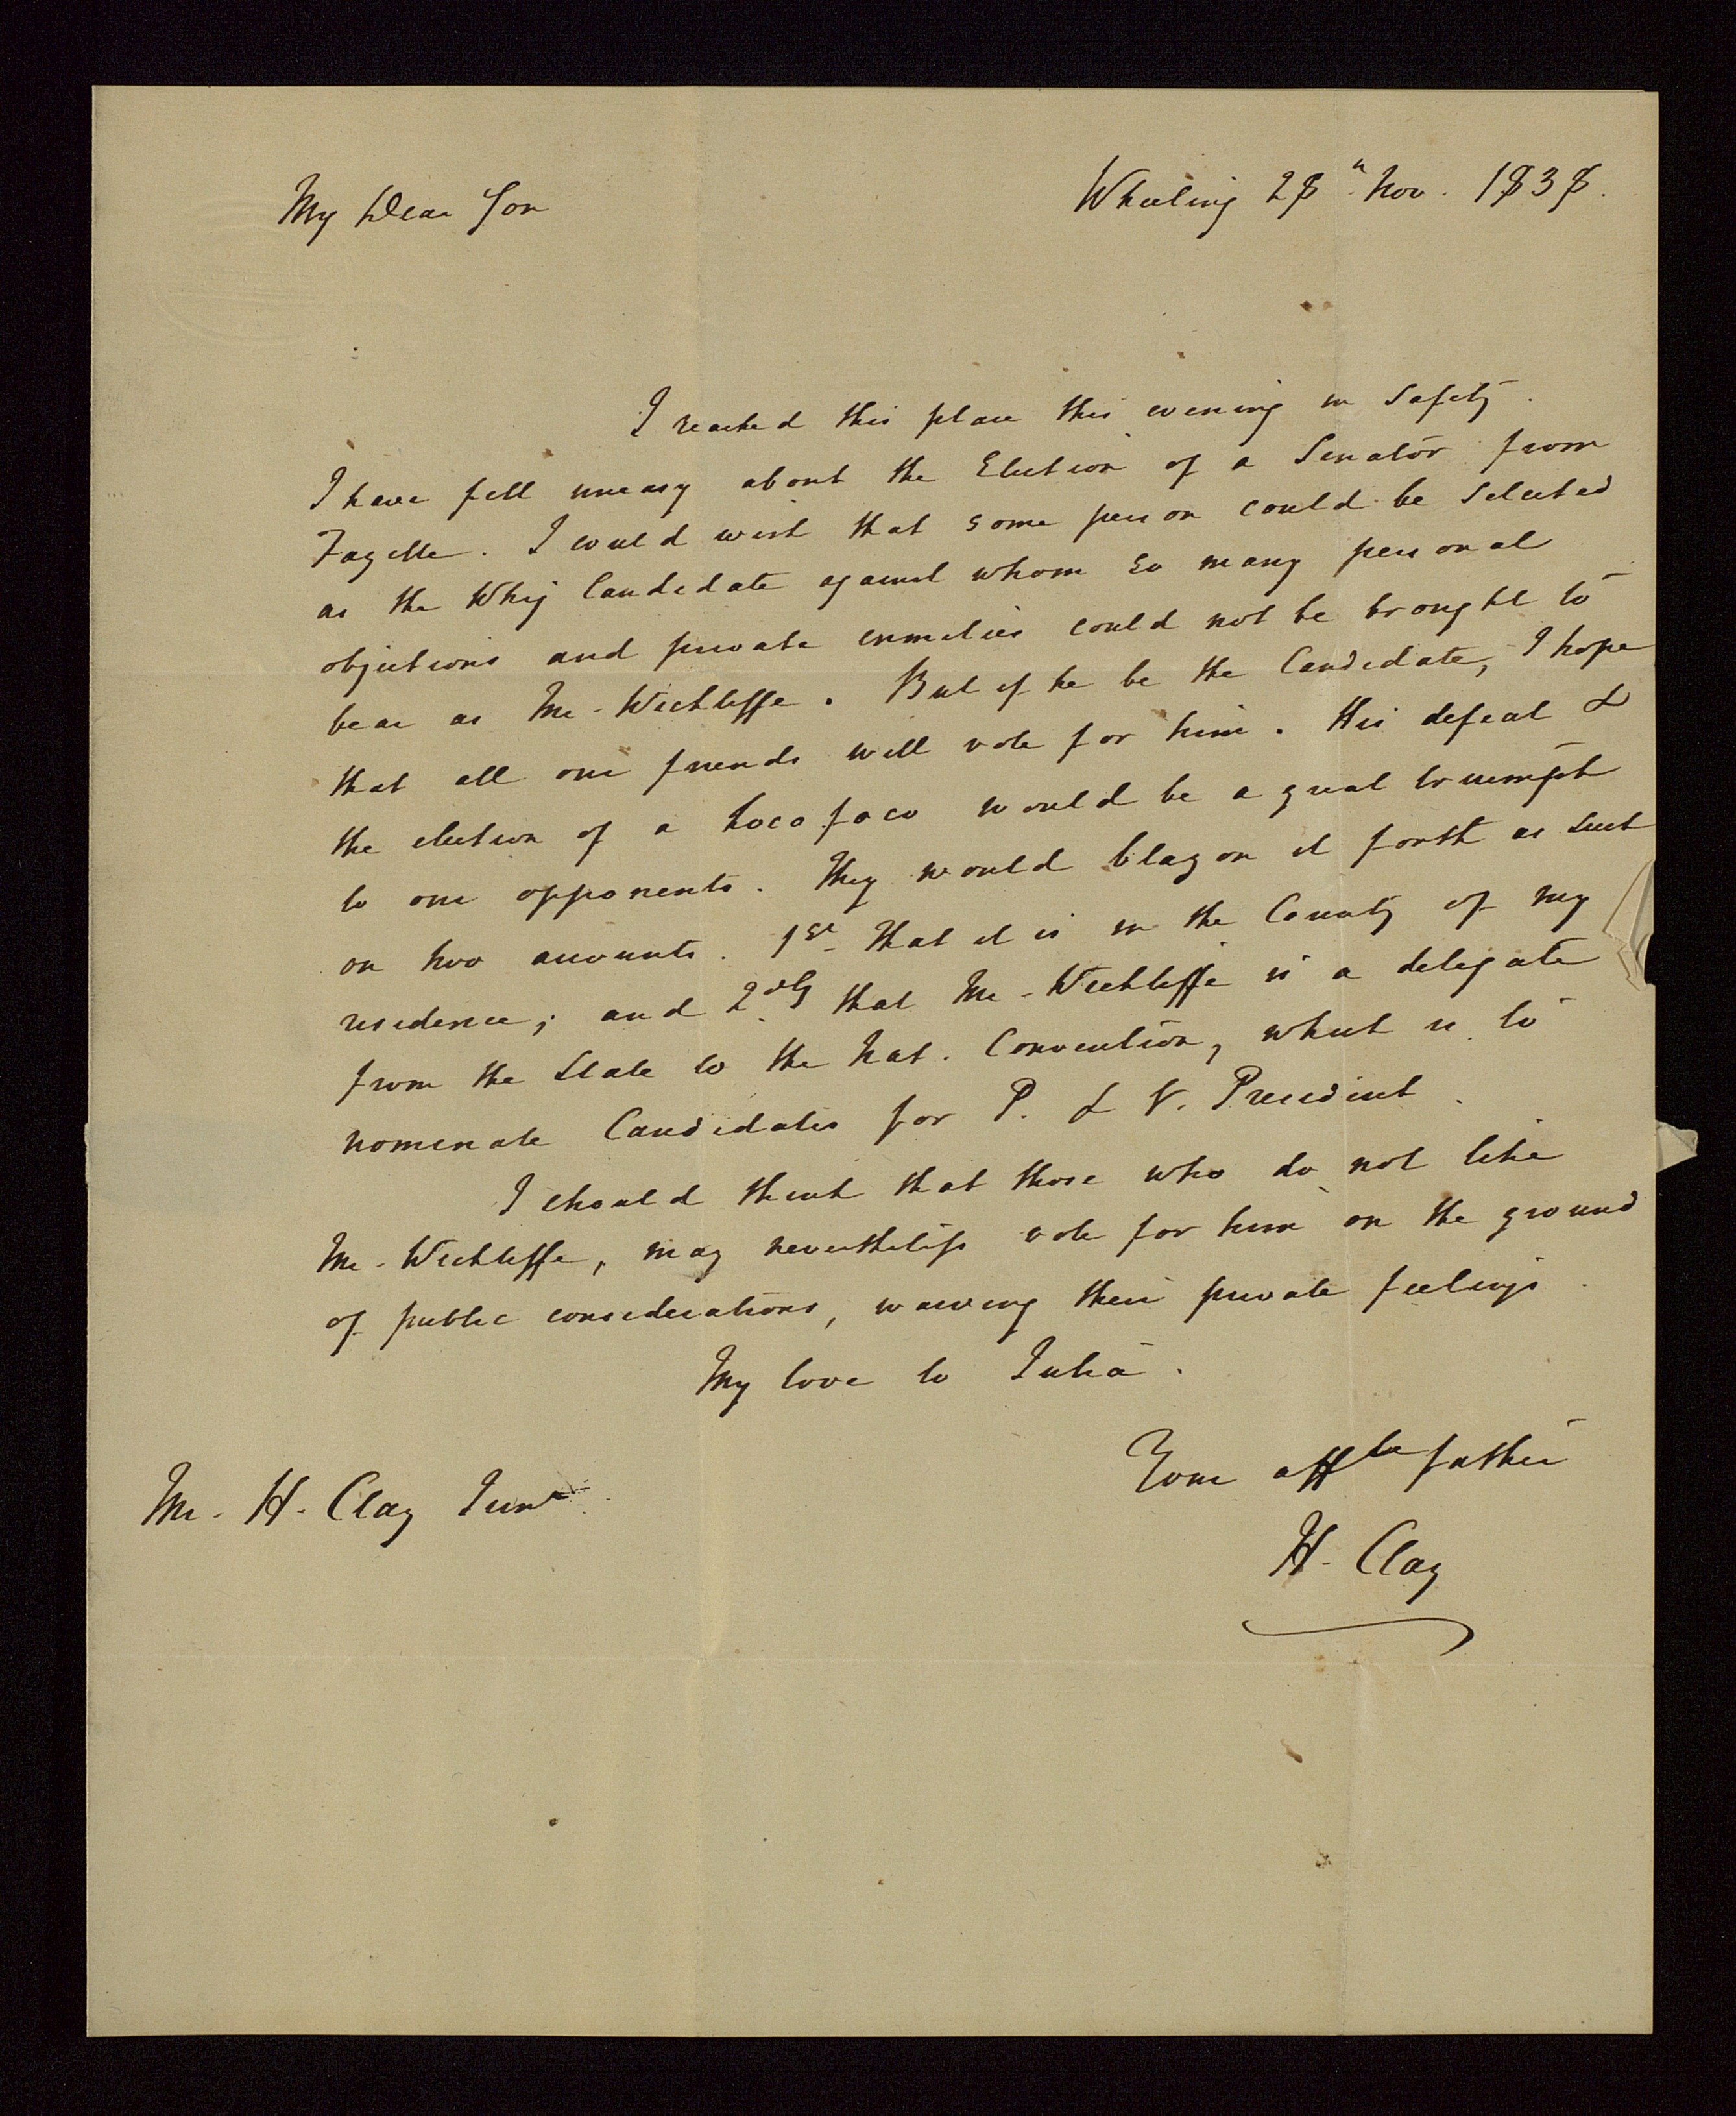 Wheeling 28h Nov. 1838.
My Dear Son
I reached this place this evening in Safety.
I have felt uneasy about the Election of a Senator from
Fayette. I could wish that some person could be selected
as the Whig Candidate against whom so many personal
objections and private enmities could not be brought to
bear as Mr. Wickliffe. But if he be the Candidate, I hope
that all our friends will vote for him. His defeat &
the election of a Locofoco would be a great triumph
to our opponents. They would blazon it forth as such
on two accounts. 1st. That it is in the County of my
residence; and 2dly that Mr. Wickliffe is a delegate
from the State to the Nat. Convention, which is to
nominate Candidates for P. & V. President.
I should think that those who do not like
Mr. Wickliffe, may nevertheless vote for him on the ground
of public considerations, waiving their private feelings.
My love to Julia.
Your affte father
H. Clay
Mr. H. Clay Junr.